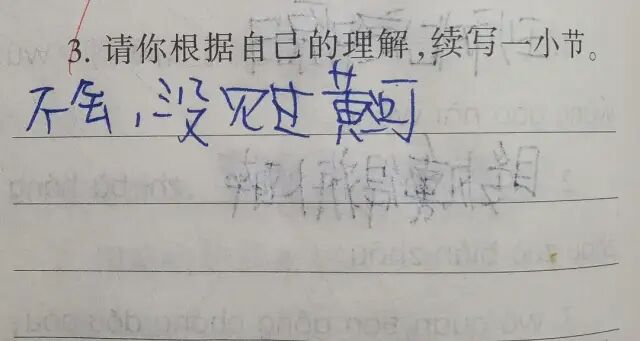 3. 请你根据自己的理解,续写一小节。
不会,没见过黄河